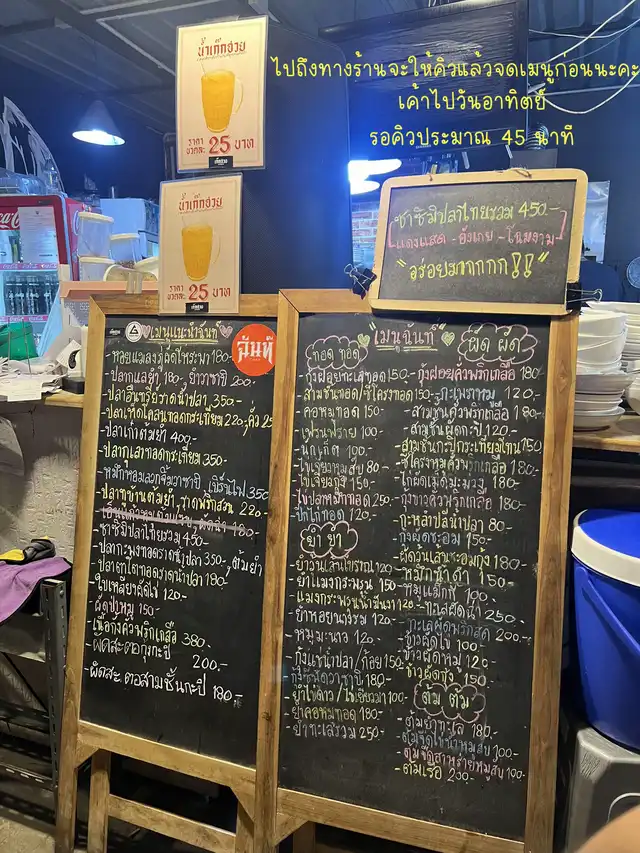 น้ำเก๊กฮวย
ราคา
ขวดละ 25 บาท
น้ำเก๊กฮวย
ราคา
ขวดละ 25 บาท
ไปถึงทางร้านจะให้คิวแล้วจดเมนูก่อนนะคะ
เค้าไปวันอาทิตย์
รอคิวประมาณ 45 นาที
ซาซิมิปลาไทยรวม 450.-
แดงแสด - อังเกย - โฉมงาม
"อร่อยมากกกก!!"
Coca
เมนูแนะนำฉันท์
ฉันท์
-หอยแมลงภู่ผัดโหระพา 180.-
-ปลากแลยำ 180.- ยำวาซาบิ 200.-
-ปลาอินทรีย์ราดน้ำปลา 350.-
-ปลาเห็ดโคนทอดกระเทียม 220,
-ปลาเก๋าต้มยำ 400.-
-ปลากุเลาทอดกระเทียม 350.-
-หมึกหอมลวกจิ้มวาซาบิ 350
-ปลาทูซาบะต้มยำ, ราดพริกสวน 220.-
180.-
-ซาซิมิปลาไทยรวม 450.-
-ปลากะพงทอดราดน้ำปลา 350.-, ต้มยำ
-ปลาตาโตทอดราดน้ำปลา 180.-
-ใบเหลียงผัดไข่ 120.-
-ผัดปูหมู 150.-
-เนื้อกั้งคั่วพริกเกลือ 380.-
-ผัดสะตอกุ้งกะปิ 200.-
-ผัดสะตอสามชั้นกะปิ 180.-
"เมนูฉันท์"
ทอด ทอด
-กุ้งฝอยทะเลทอด 150.-
-สามชั้นทอด/ซี่โครงทอด 150.-
-คอหมูทอด 150.-
-เฟรนฟราย 100.-
-นักเก็ต 100.-
-ไข่เจียวหมูสับ 80.-
-ไข่เจียวกุ้ง 150.-
-ไข่ปลาหมึกทอด 250.-
-ปีกไก่ทอด 120.-
ยำ ยำ
-ยำวุ้นเส้นโบราณ 120.-
-ยำแมงกะพรุน 150.-
-แมงกะพรุนน้ำมันงา 120.-
-ยำหอยนางรม 120.-
-หมูมะนาว 120.-
-กุ้งแช่น้ำปลา/ก้อย 150.-
-กุ้งซัดวาซาบิ 180.-
-ยำไข่ดาว/ไข่เยี่ยวม้า 100.-
-ยำคอหมูทอด 180.-
-ยำทะเลรวม 250.-
ผัด ผัด
-กุ้งฝอยคั่วพริกเกลือ 180.-
-กะเพราหมู 120.-
-สามชั้นคั่วพริกเกลือ 180.-
-สามชั้นผัดกะปิ 120.-
-สามชั้นกะปิกระเทียมโทน 150.-
-ซี่โครงหมูคั่วพริกเกลือ 180.-
-ไก่ผัดเม็ดมะม่วง 180.-
-กุ้งขาวคั่วพริกเกลือ 180.-
-กะหล่ำปลีน้ำปลา 80.-
-กุ้งผัดชะอม 150.-
-ผัดวุ้นเส้นชะอมกุ้ง 180.-
-หมึกน้ำดำ 150.-
-หมูแม็กกี้ 100.-
-ทะเลผัดฉ่า 250.-
-ทะเลผัดพริกสด 200.-
-ข้าวผัดไข่ 100.-
-ข้าวผัดหมู 120.-
-ข้าวผัดกุ้ง 150.-
ต้ม ต้ม
-ต้มยำทะเล 180.-
-ต้มจืดไข่น้ำหมูสับ 100.-
-ต้มจืดสาหร่ายหมูสับ 100.-
200.-